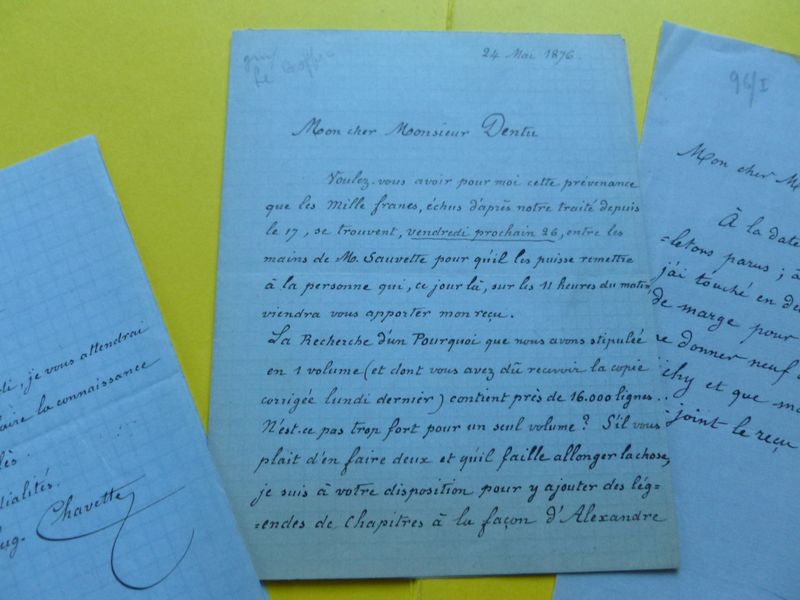 24 Mai 1876.
Mon cher Monsieur Dentu
Voulez-vous avoir pour moi cette prévenance
que les Mille francs, échus d'après notre traité depuis
le 17, se trouvent, vendredi prochain 26, entre les
mains de M. Sauvette pour qu'il les puisse remettre
à la personne qui, ce jour là, sur les 11 heures du matin,
viendra vous apporter mon reçu.
La Recherche d'un Pourquoi que nous avons stipulée
en 1 volume (et dont vous avez dû recevoir la copie
corrigée lundi dernier) contient près de 16.000 lignes..
N'est-ce pas trop fort pour un seul volume? S'il vous
plait d'en faire deux et qu'il faille allonger la chose,
je suis à votre disposition pour y ajouter des lég=
=endes de Chapitres à la façon d'Alexandre
di, je vous attendrai
aire la connaissance
lès.
dialités.
ug. Chavette
96/I
Mon cher M
À la date
=letons parus; à
j'ai touché en de
de marge pour
re donner neuf
chy et que mo
joint le reçu